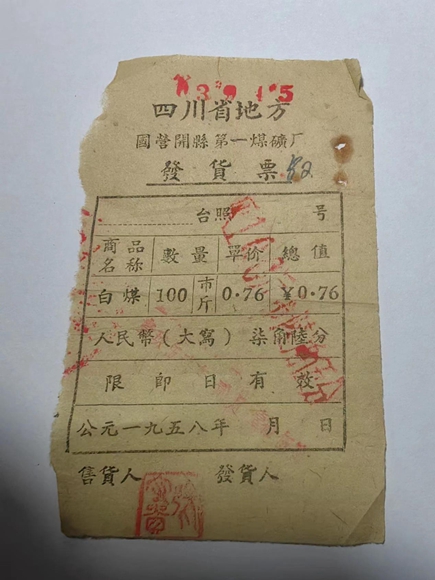 四川省地方
國营開縣第一煤礦厂
發貨票
台照 號
商品名称 數量 單价 總值
白煤 100 市斤 0.76 ¥0.76
人民幣(大寫)柒角陸分
限即日有效
公元一九五八年 月 日
售貨人 發貨人